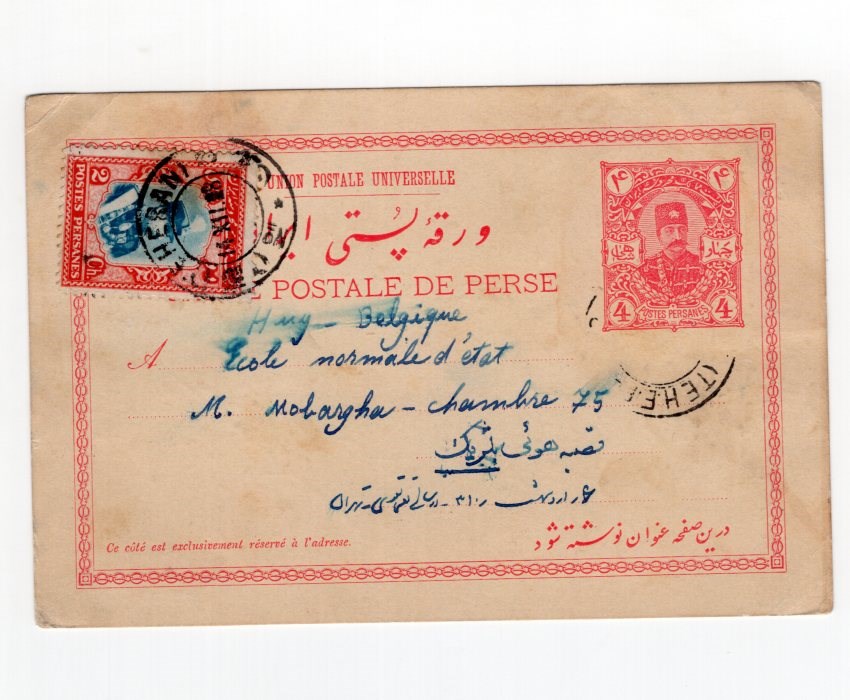 UNION POSTALE UNIVERSELLE
ورقهٔ پُستی ایران
POSTALE DE PERSE
2 POSTES PERSANES Ch
TEHERAN
۴ ۴
چهار
4 POSTES PERSANES 4
(TEHE
Huy - Belgique
A Ecole normale d'état
M. Mobargha - chambre 75
قصبه هوئی بلژیک
تهران
Ce côté est exclusivement réservé à l'adresse.
درین صفحه عنوان نوشته شود